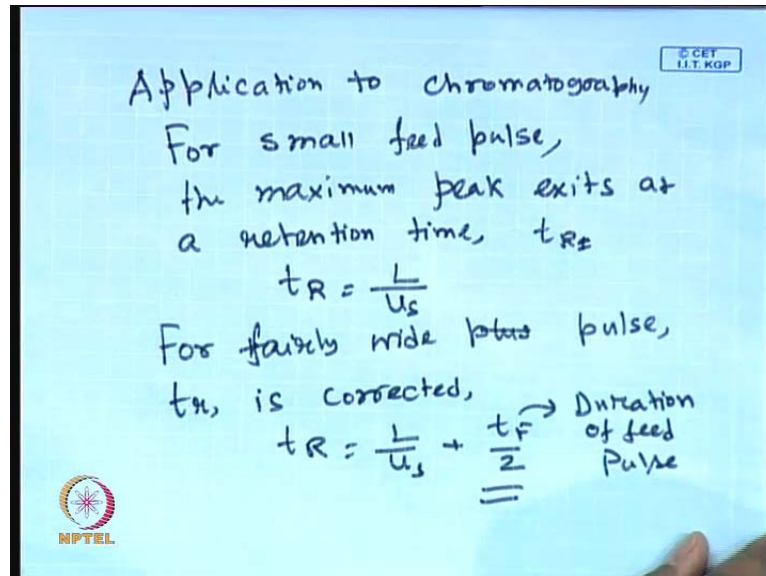 © CET
I.I.T. KGP
Application to chromatography
For small feed pulse,
the maximum peak exits at
a retention time, tR
tR = L/us
For fairly wide pulse,
tR, is corrected,
tR = L/us + tF/2 → Duration
of feed
Pulse
NPTEL